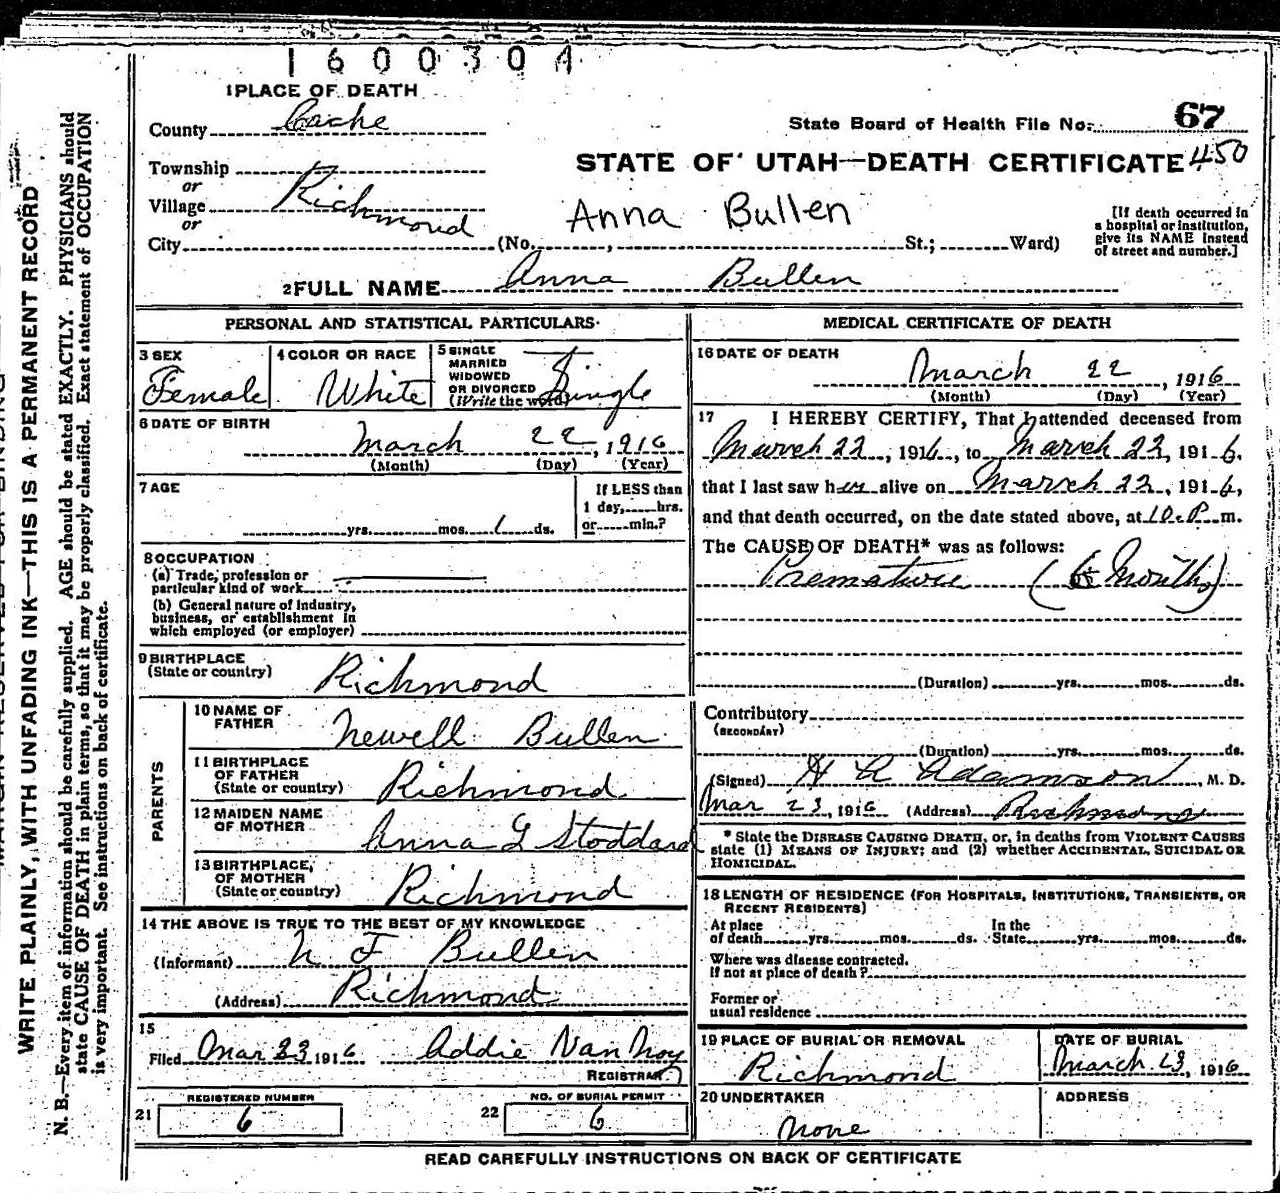 1600304
1 PLACE OF DEATH
County Cache
State Board of Health File No. 67
Township
or
Village Richmond
or
City (No. , St.; Ward)
STATE OF UTAH—DEATH CERTIFICATE 450
Anna Bullen
[If death occurred in
a hospital or institution,
give its NAME instead
of street and number.]
2 FULL NAME Anna Bullen
PERSONAL AND STATISTICAL PARTICULARS
3 SEX
Female
4 COLOR OR RACE
White
5 SINGLE
MARRIED
WIDOWED
OR DIVORCED
(Write the word)
Single
6 DATE OF BIRTH
March 22, 1916
(Month) (Day) (Year)
7 AGE
yrs. mos. 1 ds.
If LESS than
1 day, hrs.
or min.?
8 OCCUPATION
(a) Trade, profession or
particular kind of work
(b) General nature of Industry,
business, or establishment in
which employed (or employer)
9 BIRTHPLACE
(State or country) Richmond
PARENTS
10 NAME OF
FATHER Newell Bullen
11 BIRTHPLACE
OF FATHER
(State or country) Richmond
12 MAIDEN NAME
OF MOTHER Anna G Stoddard
13 BIRTHPLACE
OF MOTHER
(State or country) Richmond
14 THE ABOVE IS TRUE TO THE BEST OF MY KNOWLEDGE
(Informant) N F Bullen
(Address) Richmond
15
Filed Mar 23 1916 Addie Van Noy
REGISTRAR
REGISTERED NUMBER
21 6
NO. OF BURIAL PERMIT
22 6
MEDICAL CERTIFICATE OF DEATH
16 DATE OF DEATH
March 22, 1916
(Month) (Day) (Year)
17 I HEREBY CERTIFY, That I attended deceased from
March 22, 1916, to March 22, 1916,
that I last saw her alive on March 22, 1916,
and that death occurred, on the date stated above, at 10 P m.
The CAUSE OF DEATH* was as follows:
Premature (6 Months)
(Duration) yrs. mos. ds.
Contributory
(SECONDARY)
(Duration) yrs. mos. ds.
(Signed) H A Adamson, M. D.
Mar 23, 1916 (Address) Richmond
* State the DISEASE CAUSING DEATH, or, in deaths from VIOLENT CAUSES
state (1) MEANS OF INJURY; and (2) whether ACCIDENTAL, SUICIDAL OR
HOMICIDAL.
18 LENGTH OF RESIDENCE (FOR HOSPITALS, INSTITUTIONS, TRANSIENTS, OR
RECENT RESIDENTS)
At place
of death yrs. mos. ds.
In the
State yrs. mos. ds.
Where was disease contracted,
if not at place of death?
Former or
usual residence
19 PLACE OF BURIAL OR REMOVAL
Richmond
DATE OF BURIAL
March 23, 1916
20 UNDERTAKER
None
ADDRESS
READ CAREFULLY INSTRUCTIONS ON BACK OF CERTIFICATE
WRITE PLAINLY, WITH UNFADING INK—THIS IS A PERMANENT RECORD
N. B.—Every item of information should be carefully supplied. AGE should be stated EXACTLY. PHYSICIANS should
state CAUSE OF DEATH in plain terms, so that it may be properly classified. Exact statement of OCCUPATION
is very important. See instructions on back of certificate.